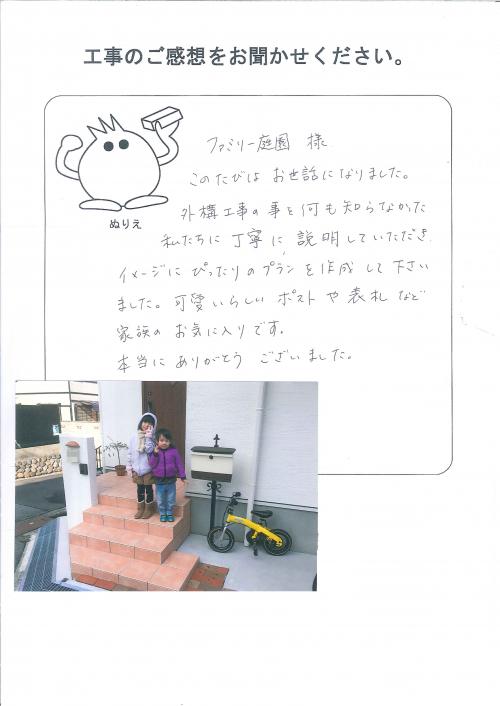 工事のご感想をお聞かせください。
ぬりえ
ファミリー庭園 様
このたびは お世話になりました。
外構工事の事を何も知らなかった
私たちに丁寧に説明していただき
イメージにぴったりのプランを作成して下さい
ました。可愛いらしいポストや表札など
家族のお気に入りです。
本当にありがとうございました。